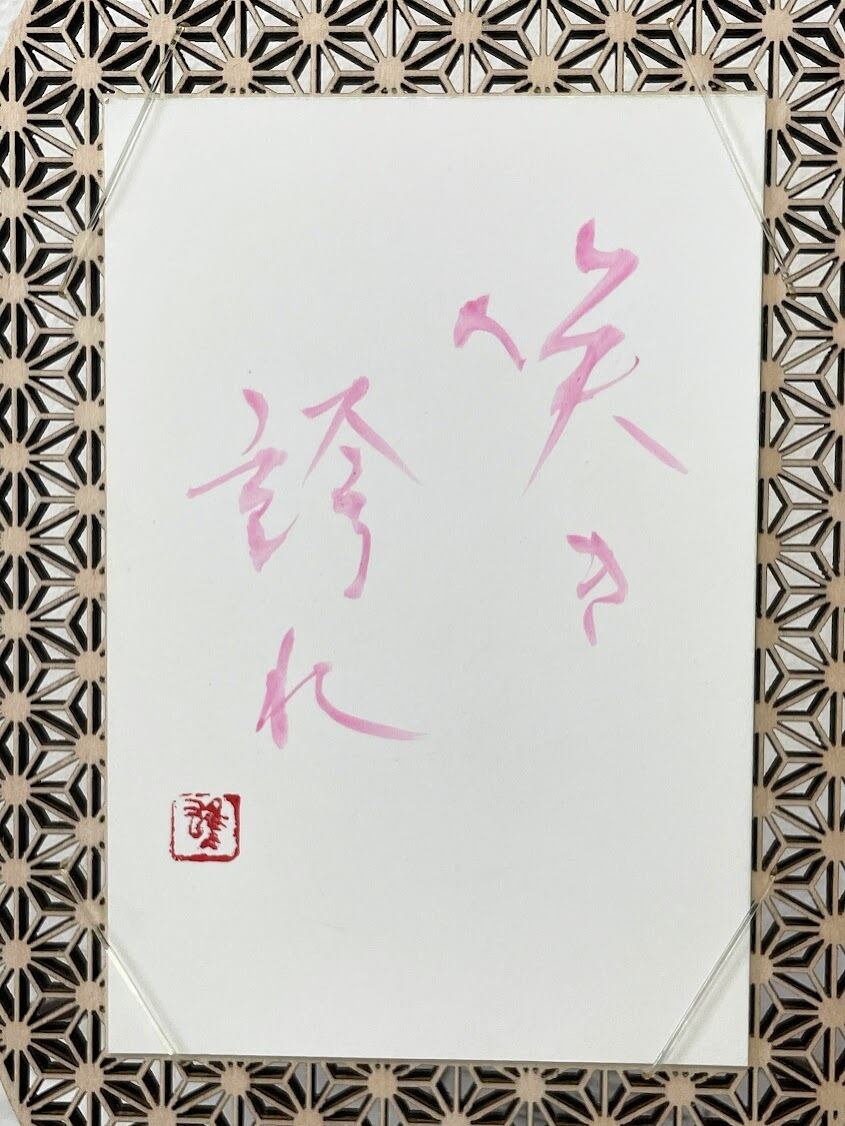 咲き
誇れ